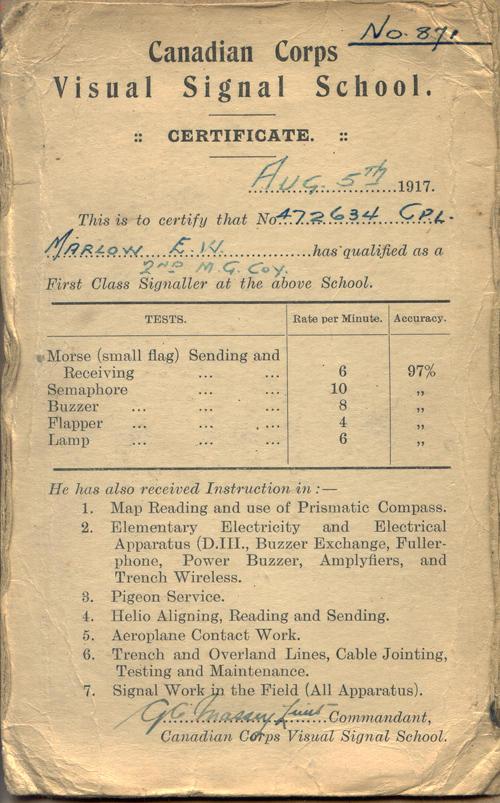 No. 871
Canadian Corps
Visual Signal School.
:: CERTIFICATE. ::
AUG. 5TH 1917.
This is to certify that No. 472634 CPL.
MARLOW E.W. has qualified as a
2ND M.G. COY.
First Class Signaller at the above School.
TESTS. Rate per Minute. Accuracy.
Morse (small flag) Sending and
Receiving ... ... 6 97%
Semaphore ... ... 10 „
Buzzer ... ... ... 8 „
Flapper ... ... ... 4 „
Lamp ... ... ... 6 „
He has also received Instruction in :—
1. Map Reading and use of Prismatic Compass.
2. Elementary Electricity and Electrical
Apparatus (D.III., Buzzer Exchange, Fuller-
phone, Power Buzzer, Amplyfiers, and
Trench Wireless.
3. Pigeon Service.
4. Helio Aligning, Reading and Sending.
5. Aeroplane Contact Work.
6. Trench and Overland Lines, Cable Jointing,
Testing and Maintenance.
7. Signal Work in the Field (All Apparatus).
Massey Lieut Commandant,
Canadian Corps Visual Signal School.